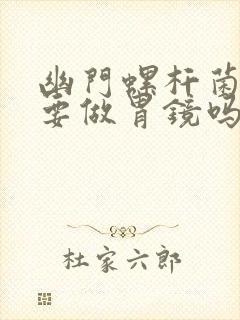 幽門螺杆菌
要做胃鏡嗎
杜家六郎